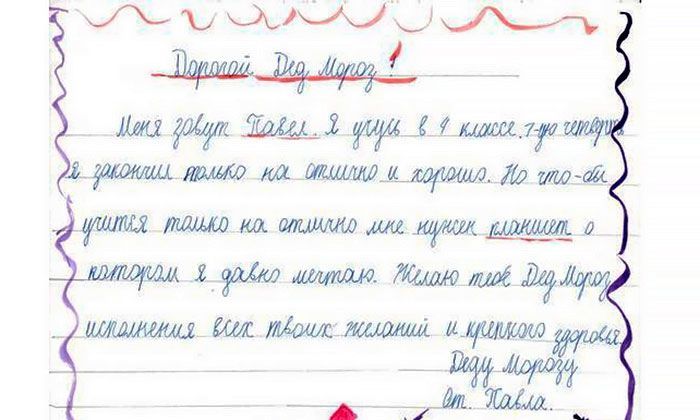 Дорогой Дед Мороз!
Меня зовут Павел. Я учусь в 4 классе. 1-ую четверть
я закончил только на отлично и хорошо. Но что-бы
учится только на отлично мне нужен планшет о
котором я давно мечтаю. Желаю тебе Дед Мороз
исполнения всех твоих желаний и крепкого здоровья.
Деду Морозу
От. Павла.